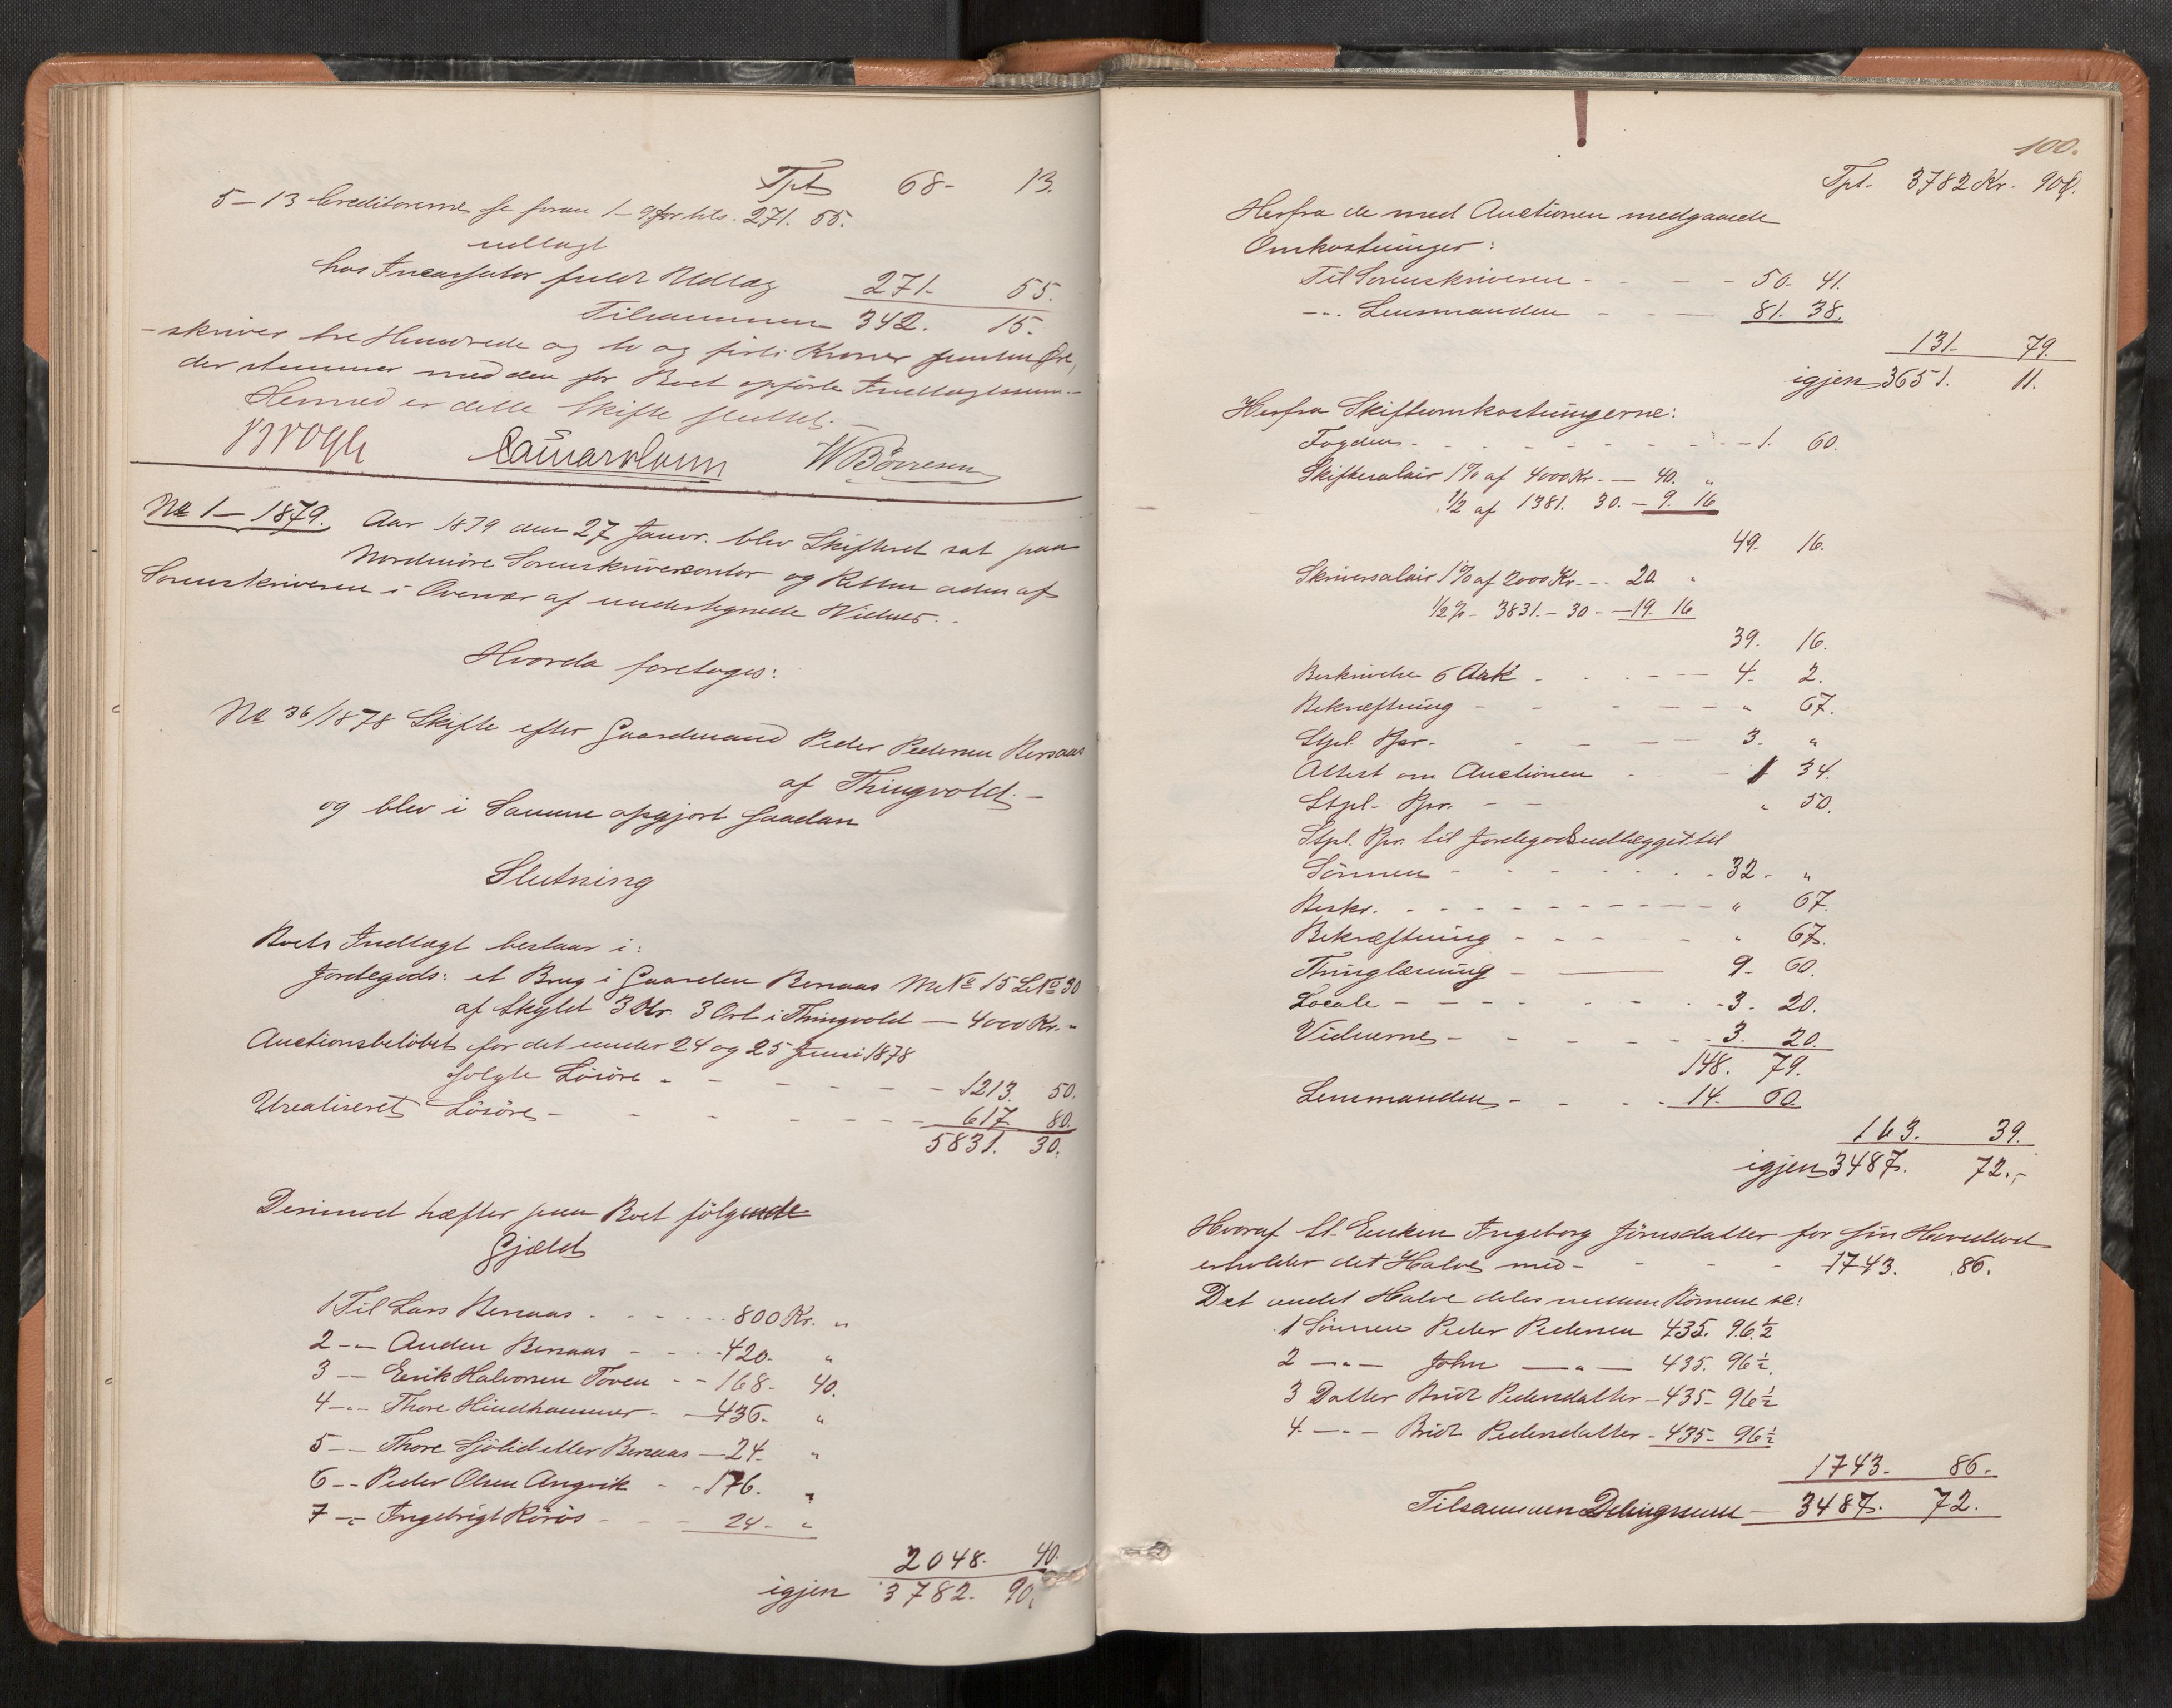 Tpt 68 - 13.
5 - 13 Creditorerne se foran 1 - 9 for tils. 271. 55.
udlagt
hos Incassator fuldt Udlæg 271. 55.
Tilsammen 342. 15.
- skriver tre Hundrede og to og førti Kroner femten Øre,
der stemmer med den for Boet opførte Indtægtssum. -
Hermed er dette Skifte sluttet. -
W Börresen
No 1 - 1879. Aar 1879 den 27 Januar. blev Skifteret sat paa
Nordmöre Sorenskrivercontor og Retten adm. af
Sorenskriveren i Overvær af undertegnede Vidner. -
Hvorda foretoges:
No 36/1878 Skifte efter Gaardmand Peder Pedersen Bersaas
af Thingvold. -
og blev i Samme afgjort saadan
Slutning
Boets Indtægt bestaar i:
Jordegods: et Brug i Gaarden Bersaas M No 15 L No 30
af Skyld 3 Dlr. 3 Ort i Thingvold - 4000 Kr. "
Auctionsbeløbet for det under 24 og 25 Juni 1878
solgte Løsøre - 1213. 50.
Urealiseret Løsøre - 617. 80.
5831. 30.
Derimod hæfter paa Boet følgende
Gjæld
1 Til Lars Bersaas - 800 Kr. "
2 - " - Anden Bersaas - 420. "
3 - - Erik Halvorsen Toven - - 168 - 40.
4 - " - Thore Hindhammer - 436. "
5 - - Thore Sjölid eller Bersaas - 24. "
6 - - Peder Olsen Angvik - - 176. "
7 - " - Ingebrigt Rörös - 24 - "
2048. 40.
igjen 3782. 90.
100.
Tpt - 3782 Kr. 90 Ø.
Herfra de med Auctionen medgaaede
Omkostninger:
Til Sorenskriveren - 50. 41.
- " - Lensmanden - 81. 38.
131. 79.
igjen 3651. 11.
Herfra Skifteomkostningerne:
Fogden - 1. 60.
Skiftesalair 1 % af 4000 Kr. - 40. "
1/2 af 1381. 30. - 9. 16
49. 16.
Skriversalair 1 % af 2000 Kr. - - 20. "
1/2 % - 3831. - 30 - - 19. 16
39. 16.
Beskrivelse 6 Ark - 4. 2.
Bekræftning - " 67.
Stpl. Ppr. - 3. "
Attest om Auctionen - 1 34.
Stpl. Ppr. - - " 50.
Stpl. Ppr. til Jordegodsudlægget til
Sönnen - 32 - "
Beskr. - " 67.
Bekræftning - " 67.
Thinglæsning - 9 - 60.
Locale - 3. 20.
Vidnerne - 3. 20.
148. 79.
Lensmanden - 14. 60.
163. 39.
igjen 3487. 72. -
Hvoraf til Enken Ingeborg Jörnsdatter for sin Hovedlod
erholder det Halve med - 1743. 86.
Det andet Halve deles mellem Börnene sc:
1 Sönnen Peder Pedersen 435. 96. 1/2
2 - " - John - " - 435. 96 1/2.
3 Datter Brit Pedersdatter - 435 - 96 1/2
4. - " - Brit Pedersdatter - 435 - 96 1/2
1743. 86. -
Tilsammen Delingssum - 3487. 72.